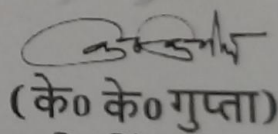 (के० के० गुप्ता)